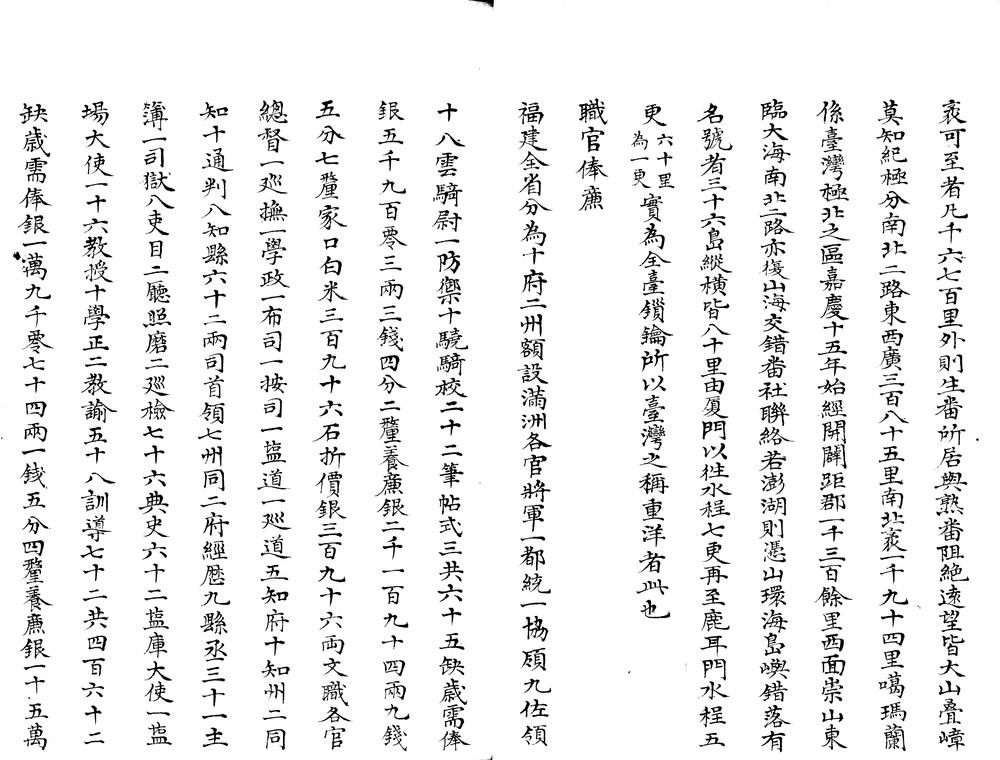 袤可至者凡千六七百里外則生番所居與熟番阻絶遠望皆大山疊嶂
莫知紀極分南北二路東西廣三百八十五里南北袤一千九十四里噶瑪蘭
係臺灣極北之區嘉慶十五年始經開闢距郡一千三百餘里西面崇山東
臨大海南北二路亦復山海交錯畨社聨絡若澎湖則憑山環海島嶼錯落有
名號者三十六島縱橫皆八十里由厦門以徃水程七更再至鹿耳門水程五
更六十里為一更實為全臺鎖鑰所以臺灣之稱重洋者此也
職官俸廉
福建全省分為十府二州額設滿洲各官將軍一都統一協領九佐領
十八雲騎尉一防禦十驍騎校二十二筆帖式三共六十五缺歲需俸
銀五千九百零三兩三錢四分二釐養廉銀二千一百九十四兩九錢
五分七釐家口白米三百九十六石折價銀三百九十六兩文職各官
總督一廵撫一學政一布司一按司一塩道一廵道五知府十知州二同
知十通判八知縣六十二兩司首領七州同二府經歷九縣丞三十一主
簿一司獄八吏目二廳照磨二廵檢七十六典史六十二塩庫大使一塩
場大使一十六教授十學正二教諭五十八訓導七十二共四百六十二
缺歲需俸銀一萬九千零七十四兩一錢五分四釐養廉銀一十五萬